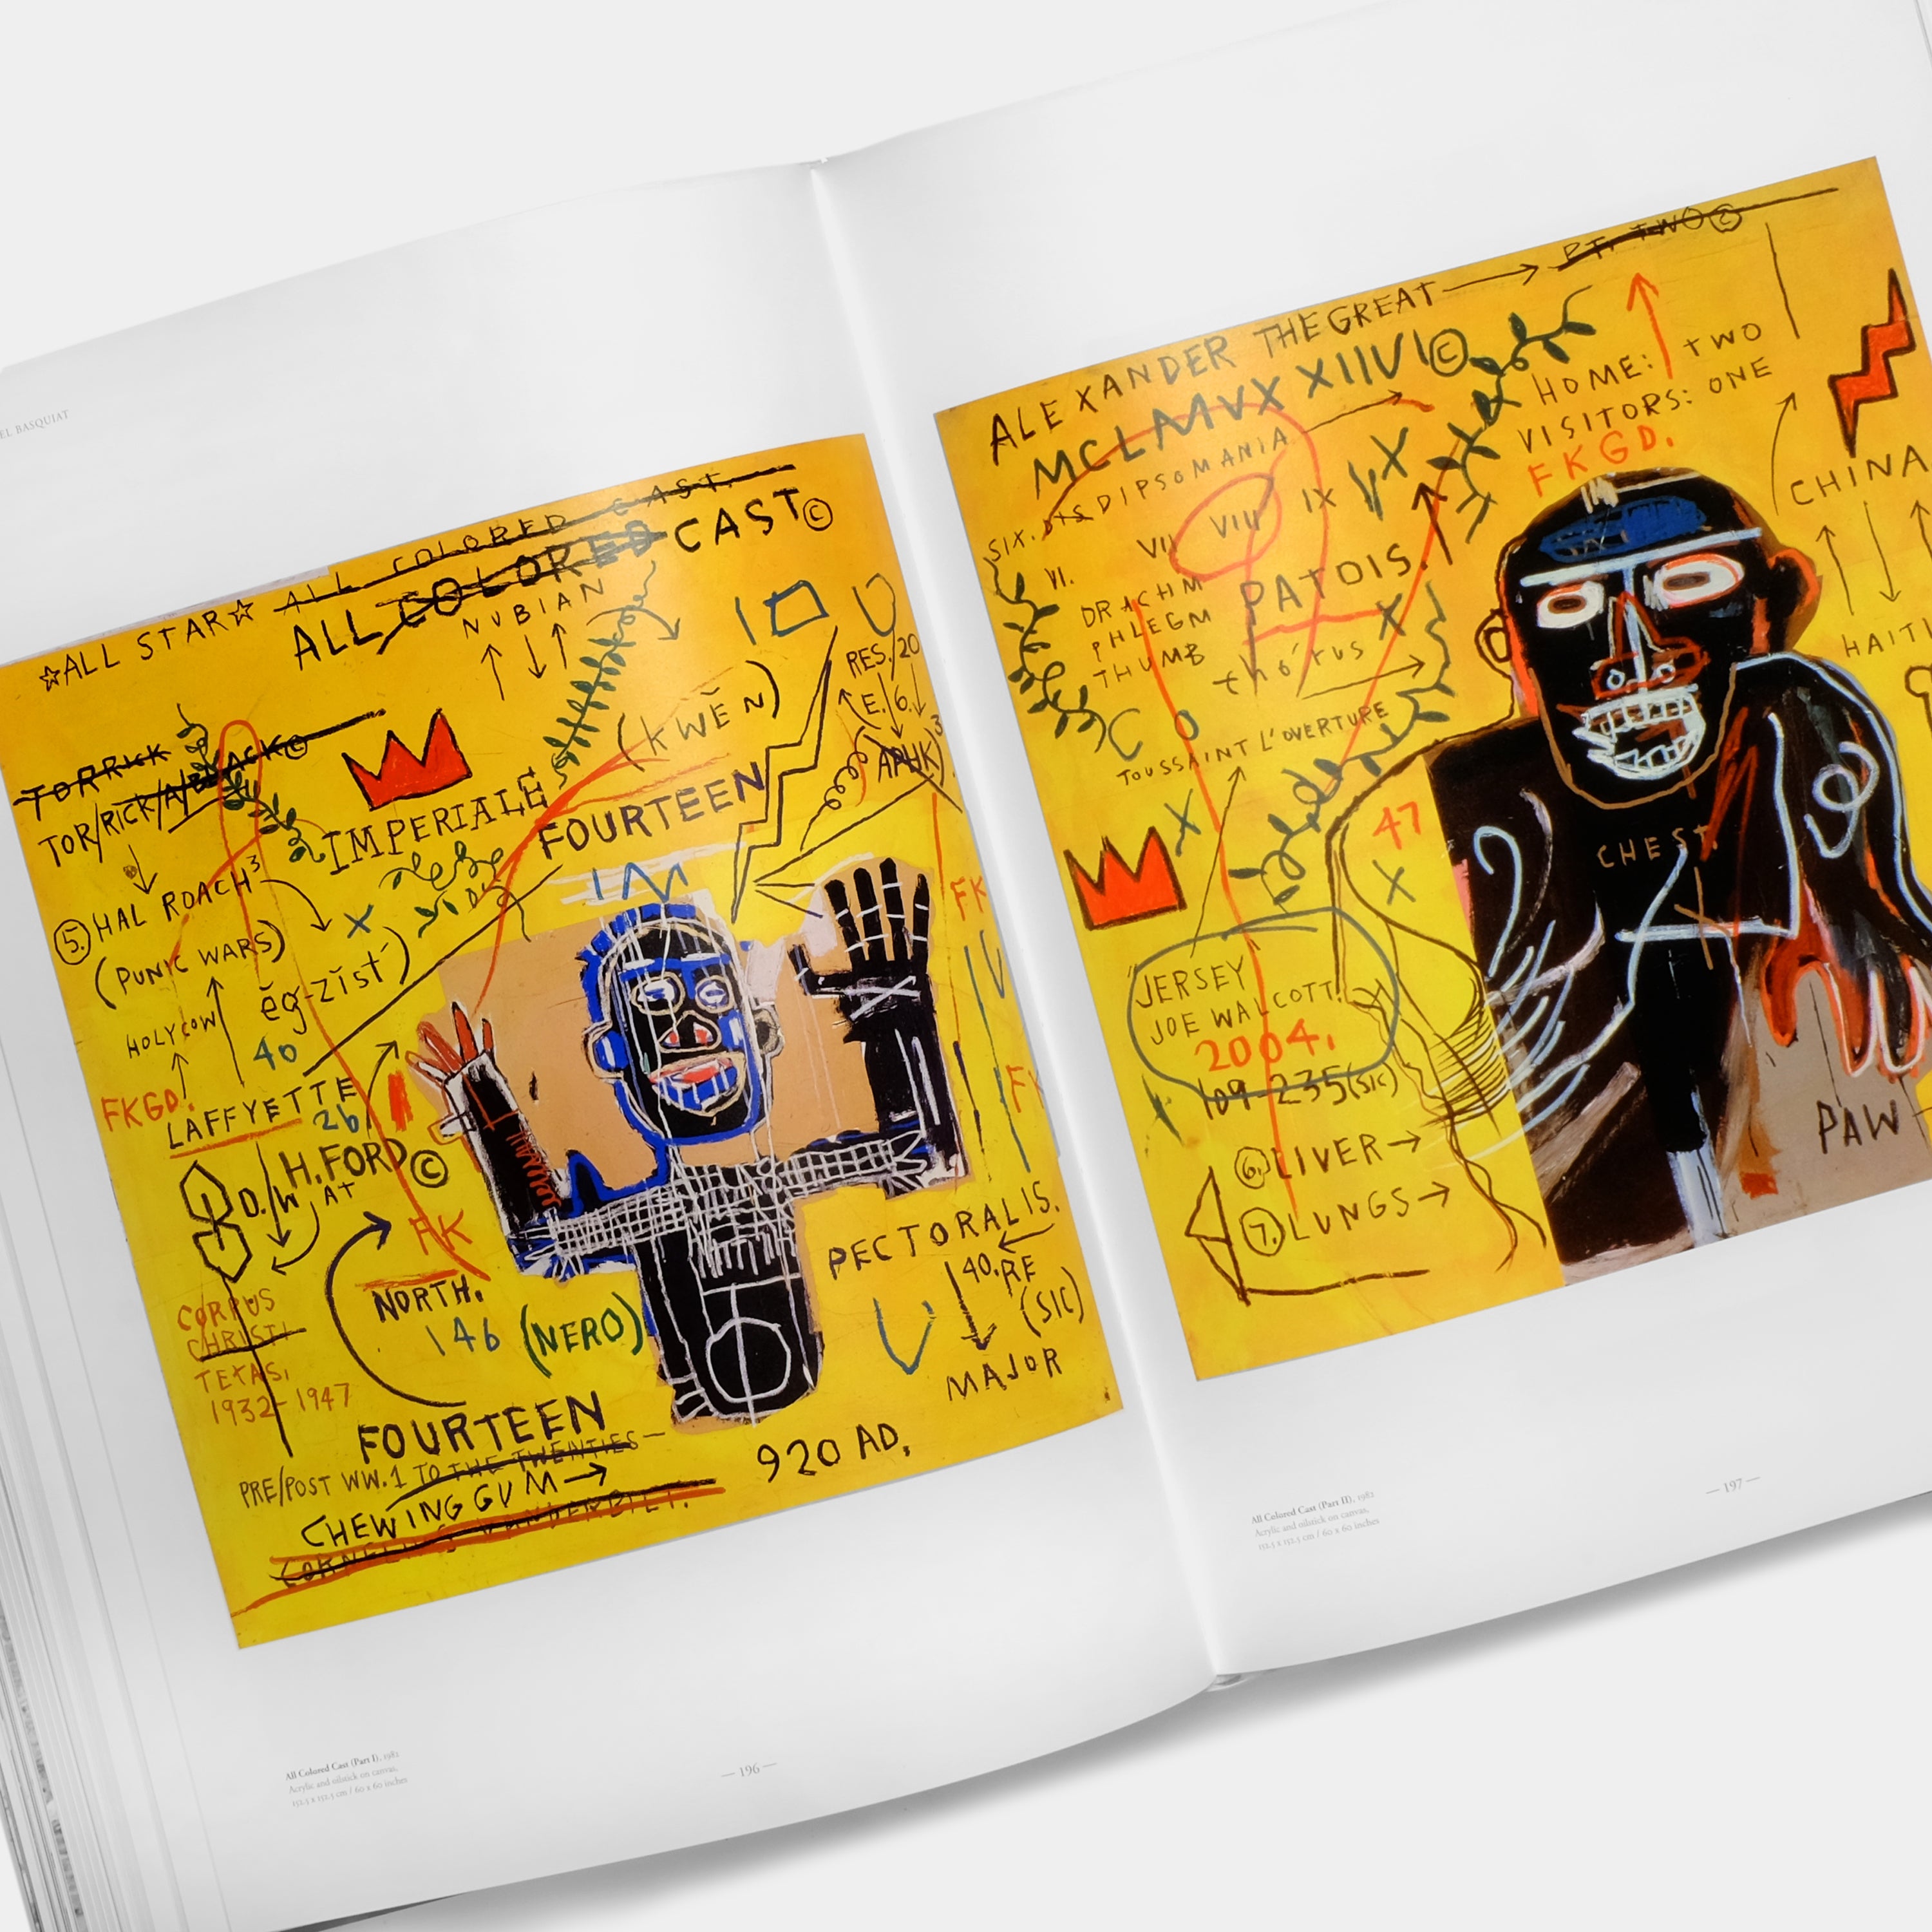 EL BASQUIAT
☆ALL STAR☆ ALL COLORED CAST.
ALL COLORED CAST©
NUBIAN
TORRICK
TOR/RICK/
IMPERIALE
(kwĕn)
RES./20
E. 6.
FOURTEEN
5. HAL ROACH³
(PUNIC WARS)
X
ĕg-zĭst')
HOLY COW
40
FKGD.
LAFFYETTE
26
H.FORD©
D.W AT
FK
FK
CORPUS
CHRISTI
TEXAS,
1932-1947
NORTH.
146 (NERO)
PECTORALIS.
40.RE
(SIC)
MAJOR
FOURTEEN
PRE/POST WW.1 TO THE TWENTIES—
CHEWING GUM→
920 AD.
All Colored Cast (Part I), 1982
Acrylic and oilstick on canvas,
152.5 x 152.5 cm / 60 x 60 inches
— 196 —
PT. TWO©
ALEXANDER THE GREAT→
MCLMVX XIIVI©
SIX. DIS DIPSOMANIA
VI. VII VIII IX
HOME: TWO
VISITORS: ONE
FKGD.
CHINA
HAITI
DRACHM
PHLEGM
THUMB
PATOIS.
thó'rus
TOUSSAINT L'OVERTURE
X
47
X
CHEST.
JERSEY
JOE WALCOTT.
2004.
109-235(SIC)
6. LIVER→
7. LUNGS→
PAW
All Colored Cast (Part II), 1982
Acrylic and oilstick on canvas,
152.5 x 152.5 cm / 60 x 60 inches
— 197 —